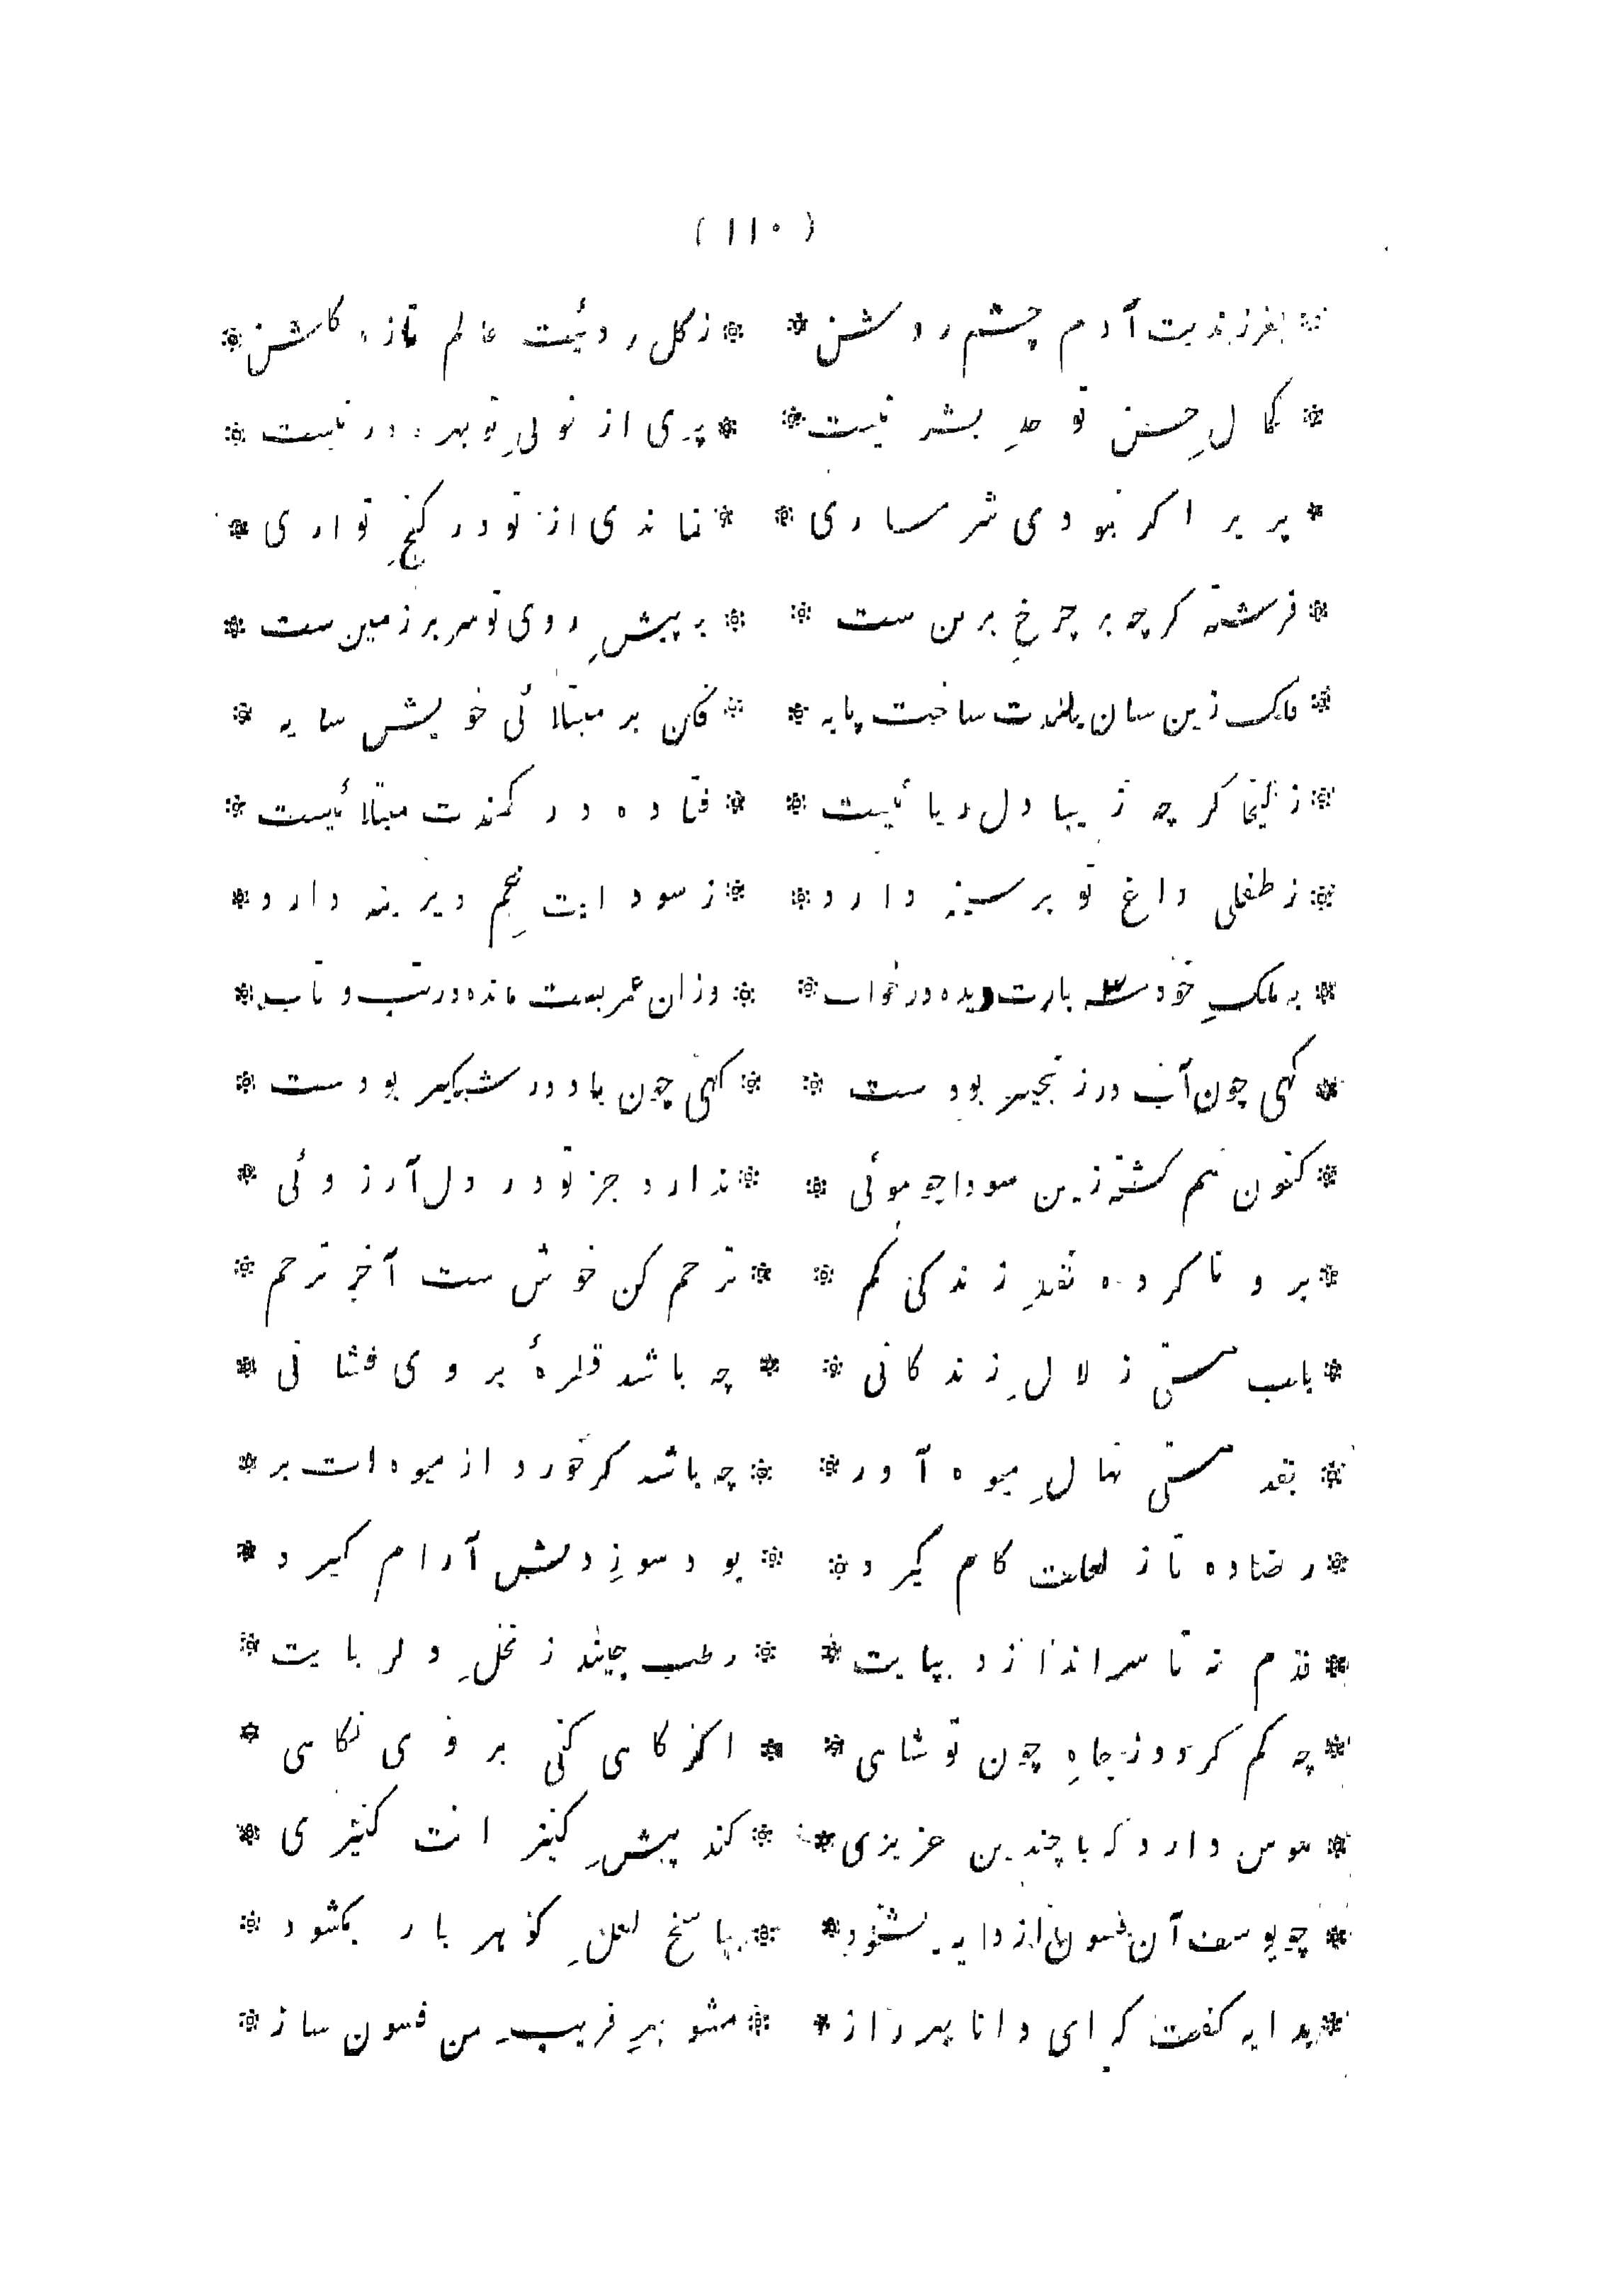 (۱۱۰)
* بفرزندیت آدم چشم روشن * * ز گل روئیت عالم تازه گلشن *
* کمالِ حسنِ تو حدِ بشر نیست * * پری از خوبیِ تو بهره ور نیست *
* پریرا کر نبودی شرمساری * * نماندی از تو در کنجِ تواری *
* فرشته کرچه بر چرخِ برین ست * * به پیشِ روی تو سر بر زمین ست *
* فلک زین سان بلندت ساخت پایه * * فکن بر مبتلائی خویش سایه *
* زلیخا کرچه زیبا دل ربائیست * * فتاده در کمندت مبتلائیست *
* ز طفلی داغ تو بر سینه دارد * * ز سودایت غمِ دیرینه دارد *
* به ملکِ خود سه بارت دیده در خواب * * وزان عمریست مانده در تب و تاب *
* کهی چون آب در زنجیر بودست * * کهی چون باد در شبکیر بودست *
* کنون هم کشته زین سودا چو موئی * * ندارد جز تو در دل آرزوئی *
* برو ناکرده نقدِ زندکی کم * * ترحم کن خوش ست آخر ترحم *
* بلب هستی زلالِ زندکانی * * چه باشد قطرهٔ بروی فشانی *
* بقد هستی نهالِ میوه آور * * چه باشد کر خورد از میوه ات بر *
* رضا ده تا ز لعلت کام کیرد * * بود سوزِ دلش آرام کیرد *
* قدم نه تا سر اندازد بپایت * * رطب چیند ز نخلِ دلربایت *
* چه کم کردد ز جاهِ چون تو شاهی * * اکر کاهی کنی بروی نکاهی *
* هوس دارد که با چندین عزیزی * * کند پیشِ کنیزانت کنیزی *
* چو یوسف آن فسون از دایه بشنود * * بپاسخ لعلِ کوهر بار بکشود *
* بدایه کفت که ای دانا بهر راز * * مشو بهرِ فریبِ من فسون ساز *